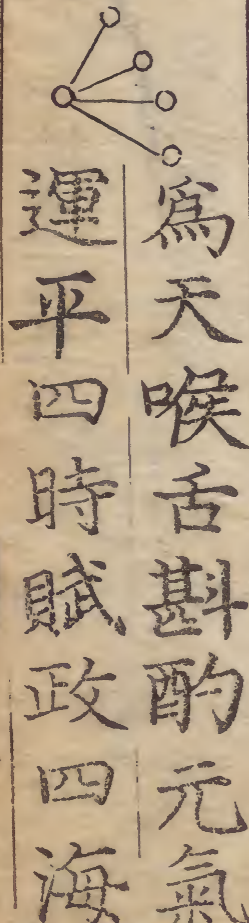 爲天喉舌斟酌元氣
運平四時賦政四海